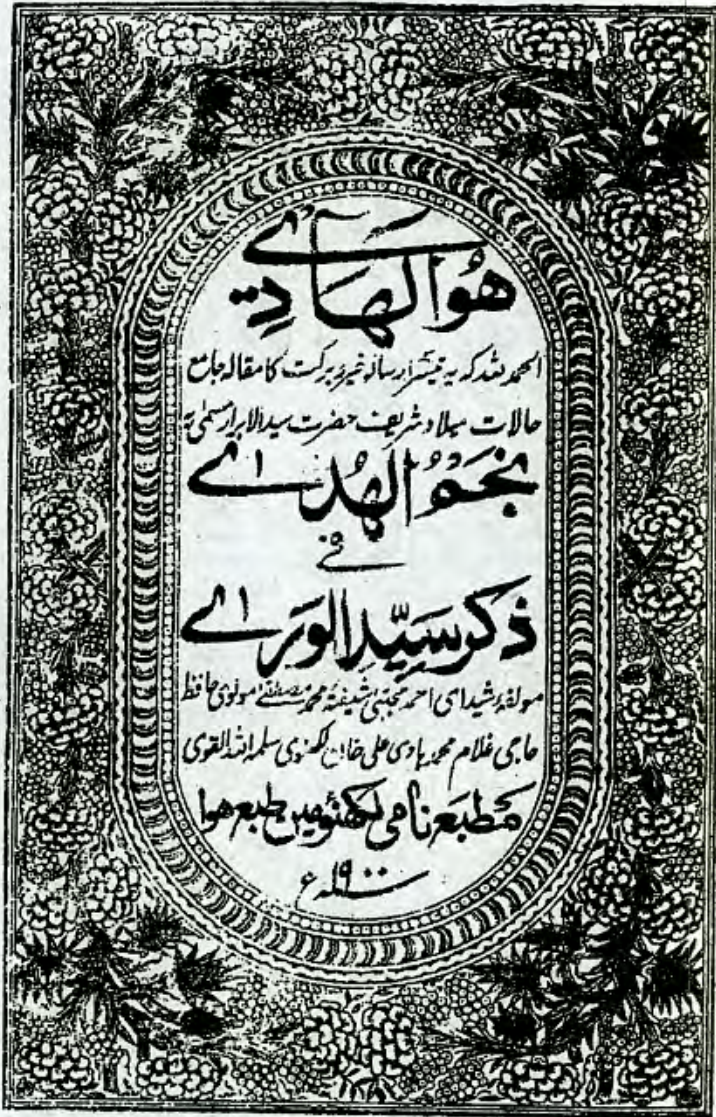 هُوَ الْهَادِي
الحمد للہ کہ یہ تیسرا رسالہ خیر و برکت کا مقالہ جامع
حالات میلاد شریف حضرت سید الابرار مسمٰی بہ
نَجْمُ الْهُدٰے
فے
ذِكر سَيِّدِ الوَرٰے
مولفہٴ شیدای احمد مجتبیٰ شیفتهٴ محمد مصطفےٰ مولوی حافظ
حاجی غلام محمد ہادی علی خاں لکھنوی سلمہ اللہ القوی
مَطبَع نامی لکھنؤ مین طبع ہوا
سنہ ۱۹۰۰ ع